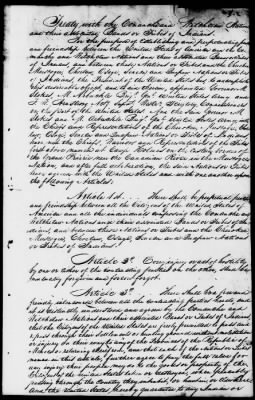 Treaty with the Comanche and Witchetaw Nations
and their associated Bands or Tribes of Indians.
For the purpose of establishing and perpetuating peace
and friendship between the United States of America and the Co-
manche and Witchetaw Nations and their associated Bands or Tribes
of Indians, and between these Nations or Tribes and the Cherokee
Muscogee, Choctaw, Osage, Seneca and Quapaw Nations or Tribes
of Indians, the President of the United States has
Stokes, M. Arbuckle Brigr Genl United States Army and
F. W. Armstrong Actg Supt Westn Territory Commissioners
on the part of the United States
Stokes and M. Arbuckle Brigr Genl United States Army
the Chiefs and Representatives of the Cherokee, Muscogee, Choc-
taw, Osage, Seneca and Quapaw Nations or Tribes of Indians
have met the Chiefs, Warriors and Representatives of the Tribes
first above named at Camp Holmes on the eastern border of
the Grand Prairie near the Canadian River in the Muscogee
Nation, and after full deliberation, the said Nations or Tribes
have agreed with the United States and with one another upon
the following Articles.
Article 1st. There shall be perpetual peace
and friendship between all the Citizens of the United States of
America and all the individuals composing the Comanche and
Witchetaw Nations and their associated Bands or Tribes of In-
dians, and between these Nations or Tribes and the Cherokee
Muscogee, Choctaw, Osage, Seneca and Quapaw Nations
or Tribes of Indians.
Article 2d. Every injury or act of hostility
by one or either of the contracting parties on the other, shall be
mutually forgiven and forever forgot.
Article 3d. There shall be a free and
friendly intercourse between all the contracting parties hereto, and
it is distinctly understood and agreed by the Comanche and
Witchetaw Nations and their associated Bands or Tribes of Indians
that the Citizens of the United States are freely permitted to pass and
repass through their settlements or hunting ground without molestation
or injury on their way to any of the Provinces of the Republic of
Mexico or returning therefrom, and that each of the Nations or Tribes
named in this article, further agree to pay the full value for
any injury their people may do to the goods or property of the
Citizens of the United States taken or destroyed, when peaceably
passing through the Country they inhabit, or hunt in, or elsewhere
And the United States hereby guarantee to any Indian or